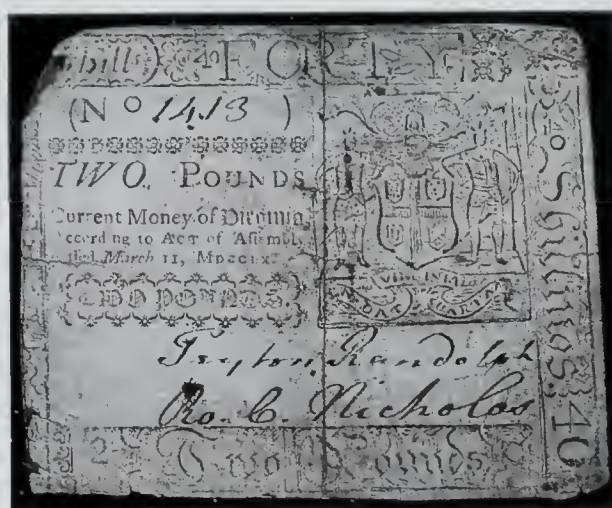 Shill) FORTY
(No 1413 )
TWO POUNDS
Current Money of Virginia
According to ACT of Assembly
March 11, MDCCLX
TWO POUNDS.
VIRGINIA
Peyton Randolph
Ro. C. Nicholas
Two Pounds
Shillings: 40